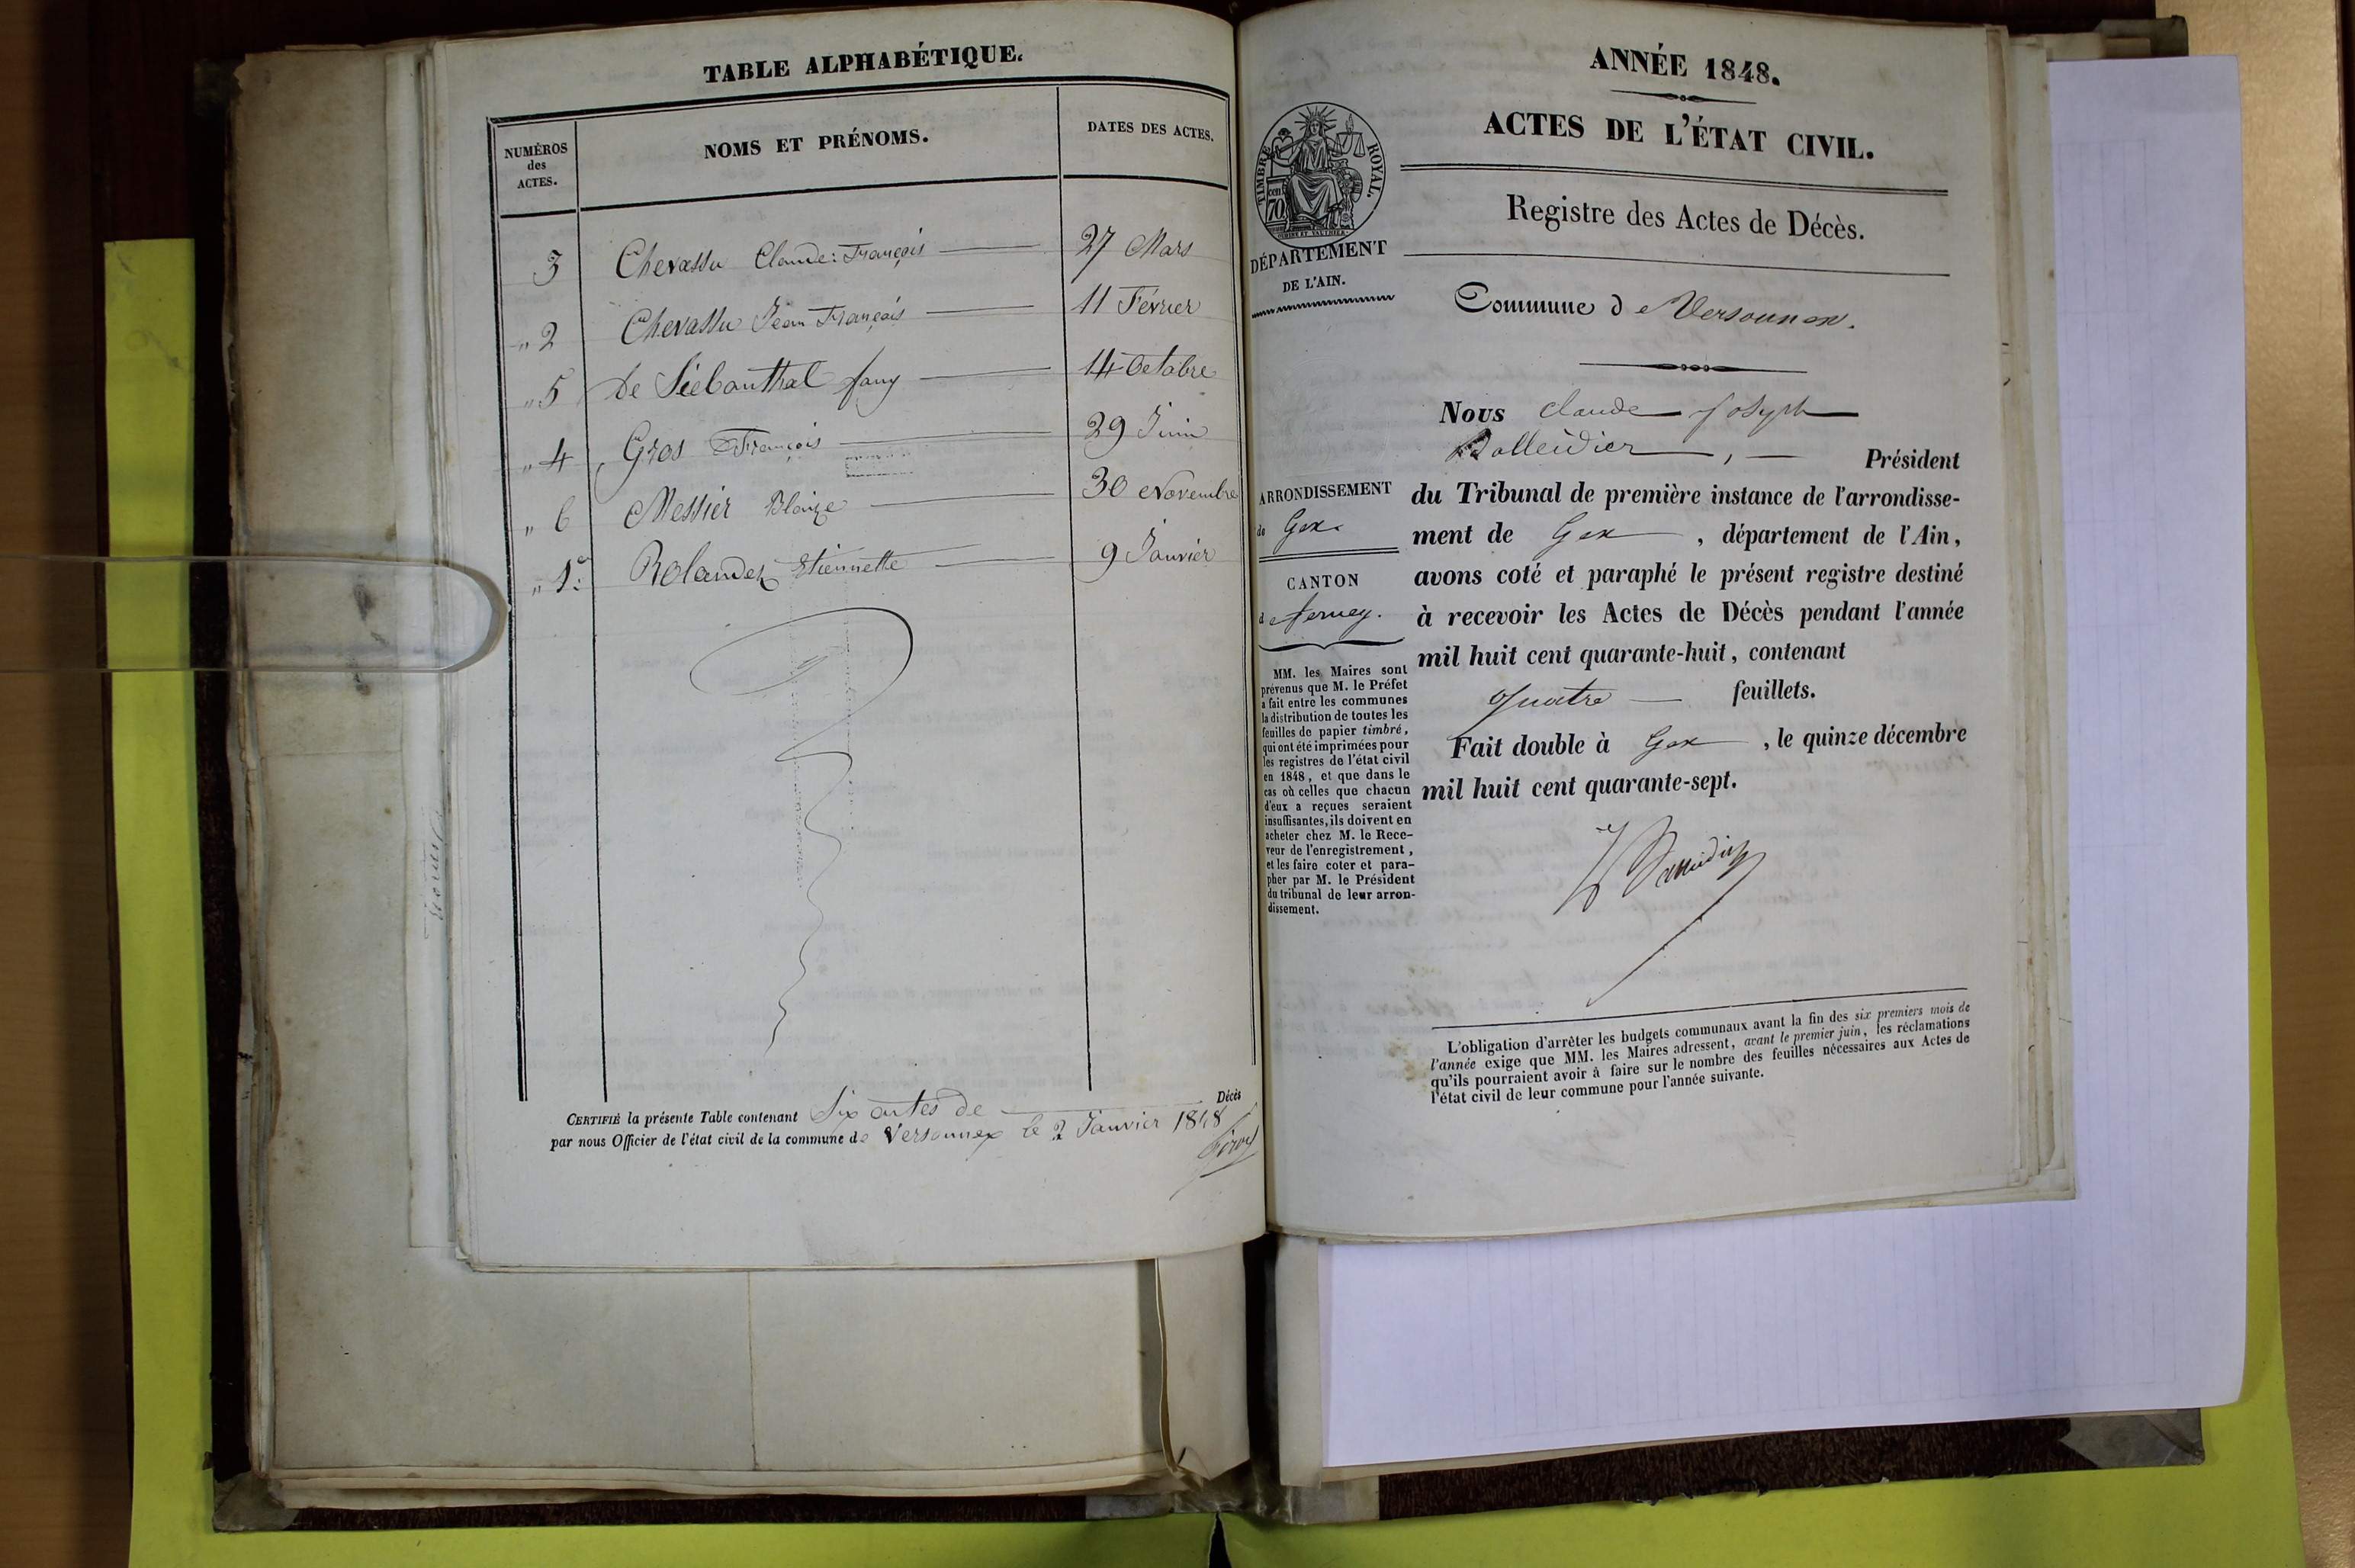 TABLE ALPHABÉTIQUE.
NUMÉROS
des
ACTES.
NOMS ET PRÉNOMS.
DATES DES ACTES.
3 Chevassu Claude: François 27 Mars
" 2 Chevassu Jean François 11 Février
" 5 De Siebanthal fany 14 Octobre
" 4 Gros François 29 Juin
" 6 Messier Blaize 30 Novembre
" 1er Rolandez Etiennette 9 Janvier
CERTIFIÉ la présente Table contenant Six actes de Décès
par nous Officier de l'état civil de la commune de Versonnex le 2 Janvier 1848
ANNÉE 1848.
ACTES DE L'ÉTAT CIVIL.
TIMBRE ROYAL.
70
Registre des Actes de Décès.
DÉPARTEMENT
DE L'AIN.
Commune de Versonnex.
Nous Claude Joseph
Balleidier, Président
du Tribunal de première instance de l'arrondisse-
ment de Gex, département de l'Ain,
avons coté et paraphé le présent registre destiné
à recevoir les Actes de Décès pendant l'année
mil huit cent quarante-huit, contenant
quatre feuillets.
Fait double à Gex, le quinze décembre
mil huit cent quarante-sept.
Balleidier
ARRONDISSEMENT
de Gex.
CANTON
de ferney.
MM. les Maires sont
prévenus que M. le Préfet
a fait entre les communes
la distribution de toutes les
feuilles de papier timbré,
qui ont été imprimées pour
les registres de l'état civil
en 1848, et que dans le
cas où celles que chacun
d'eux a reçues seraient
insuffisantes, ils doivent en
acheter chez M. le Rece-
veur de l'enregistrement,
et les faire coter et para-
pher par M. le Président
du tribunal de leur arron-
dissement.
L'obligation d'arrêter les budgets communaux avant la fin des six premiers mois de
l'année exige que MM. les Maires adressent, avant le premier juin, les réclamations
qu'ils pourraient avoir à faire sur le nombre des feuilles nécessaires aux Actes de
l'état civil de leur commune pour l'année suivante.